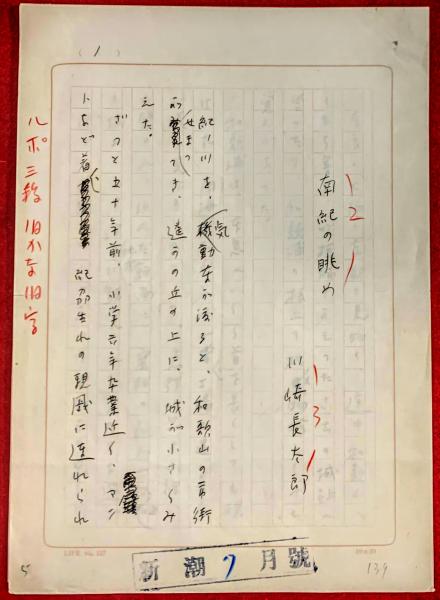 (1)
南紀の眺め
川崎長太郎
紀ノ川を、気動車が渡ると、和歌山の市街
がせまってき、遠うの丘の上に、城が小さくみ
えた。
ざっと五十年前、小学六年卒業近く、マン
トなど着、紀州生れの親戚に連れられ
ルポ 三段 旧かな旧字
新潮7月號
139
5